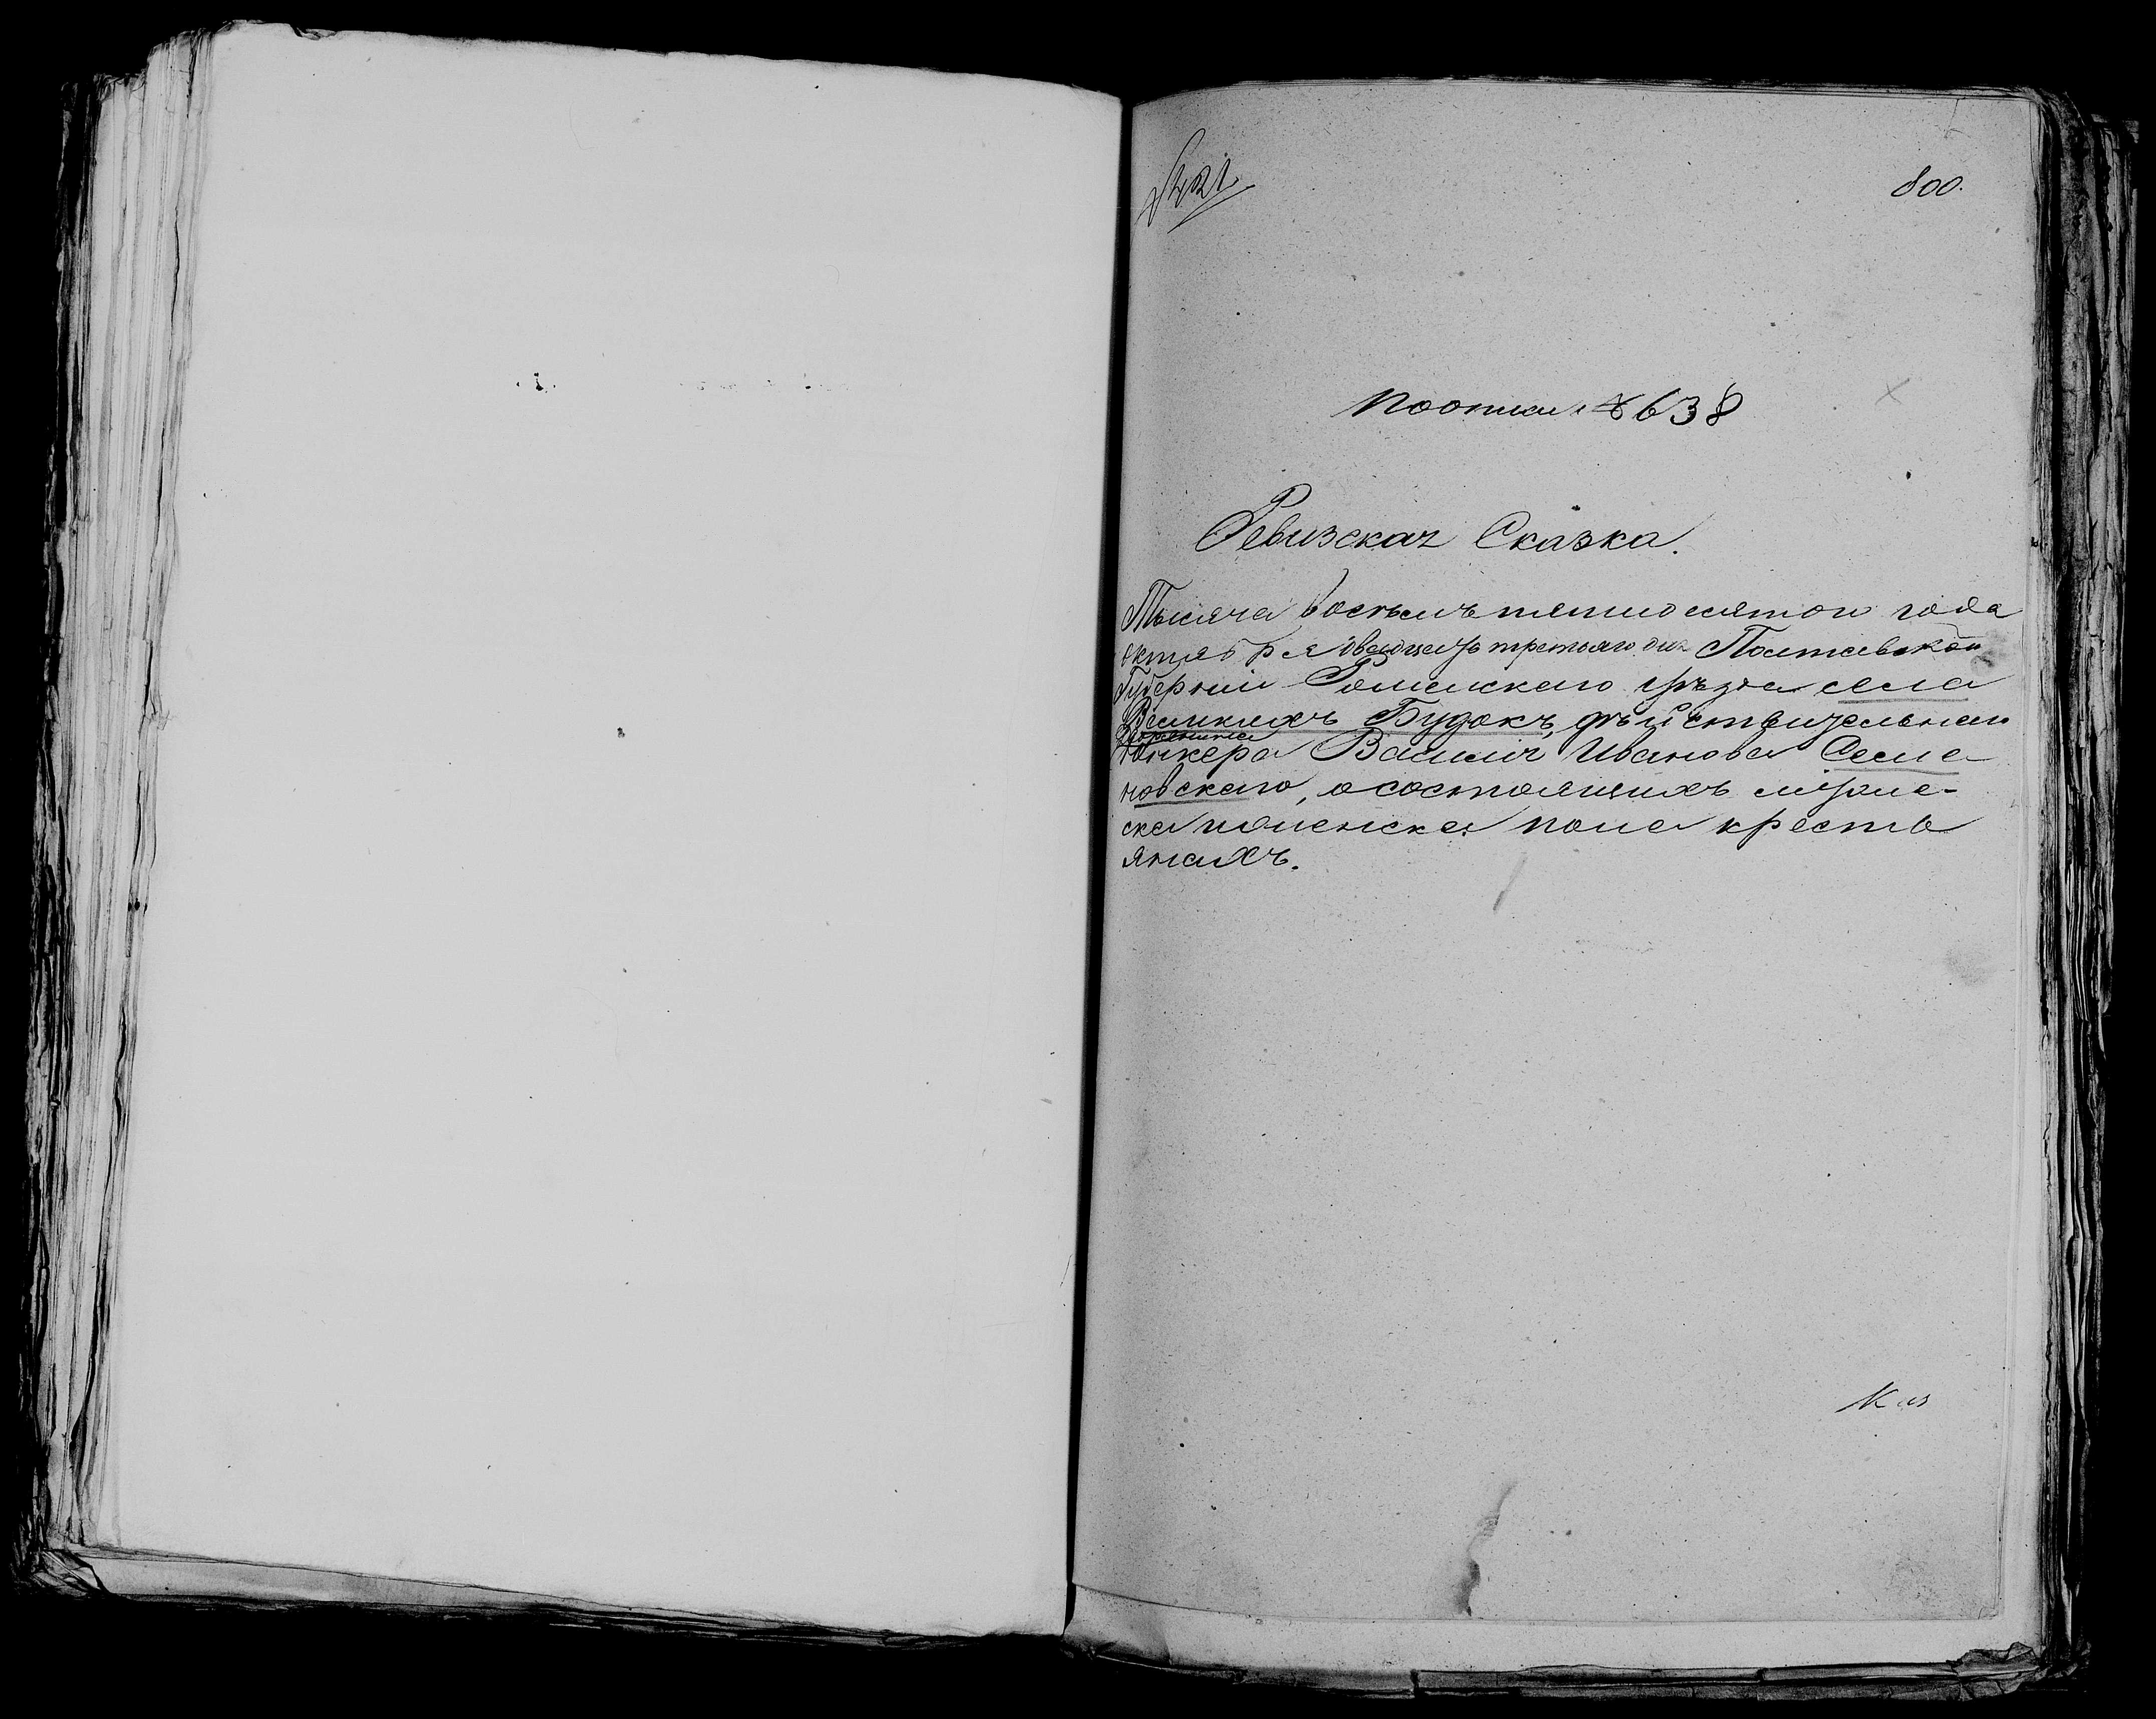 800.
по описи № 638
Ревизская Сказка.
Тысяча восемъ пятидесятого года
октября двадцать третьяго дня Полтавской
Губерніи Роменскаго уѣзда села
Великихъ Будокъ, дѣйствительнаго
юнкера Василія Иванова Семе
новскаго, о состоящихъ мужес-
ка и женска пола кресть
янахъ.